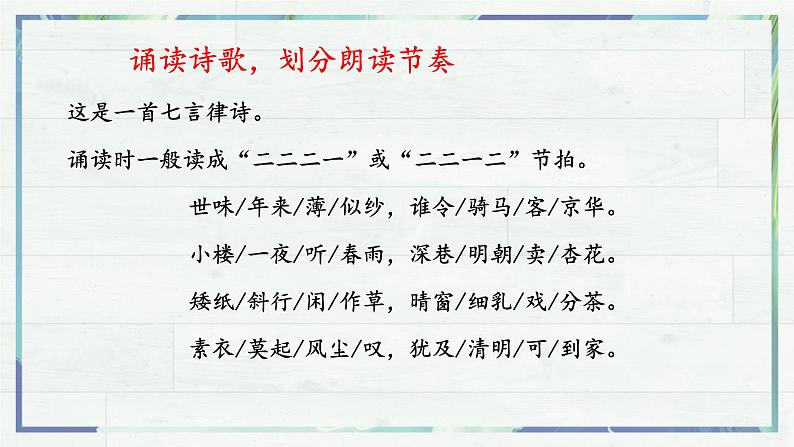 诵读诗歌，划分朗读节奏
这是一首七言律诗。
诵读时一般读成“二二二一”或“二二一二”节拍。
世味/年来/薄/似纱，谁令/骑马/客/京华。
小楼/一夜/听/春雨，深巷/明朝/卖/杏花。
矮纸/斜行/闲/作草，晴窗/细乳/戏/分茶。
素衣/莫起/风尘/叹，犹及/清明/可/到家。